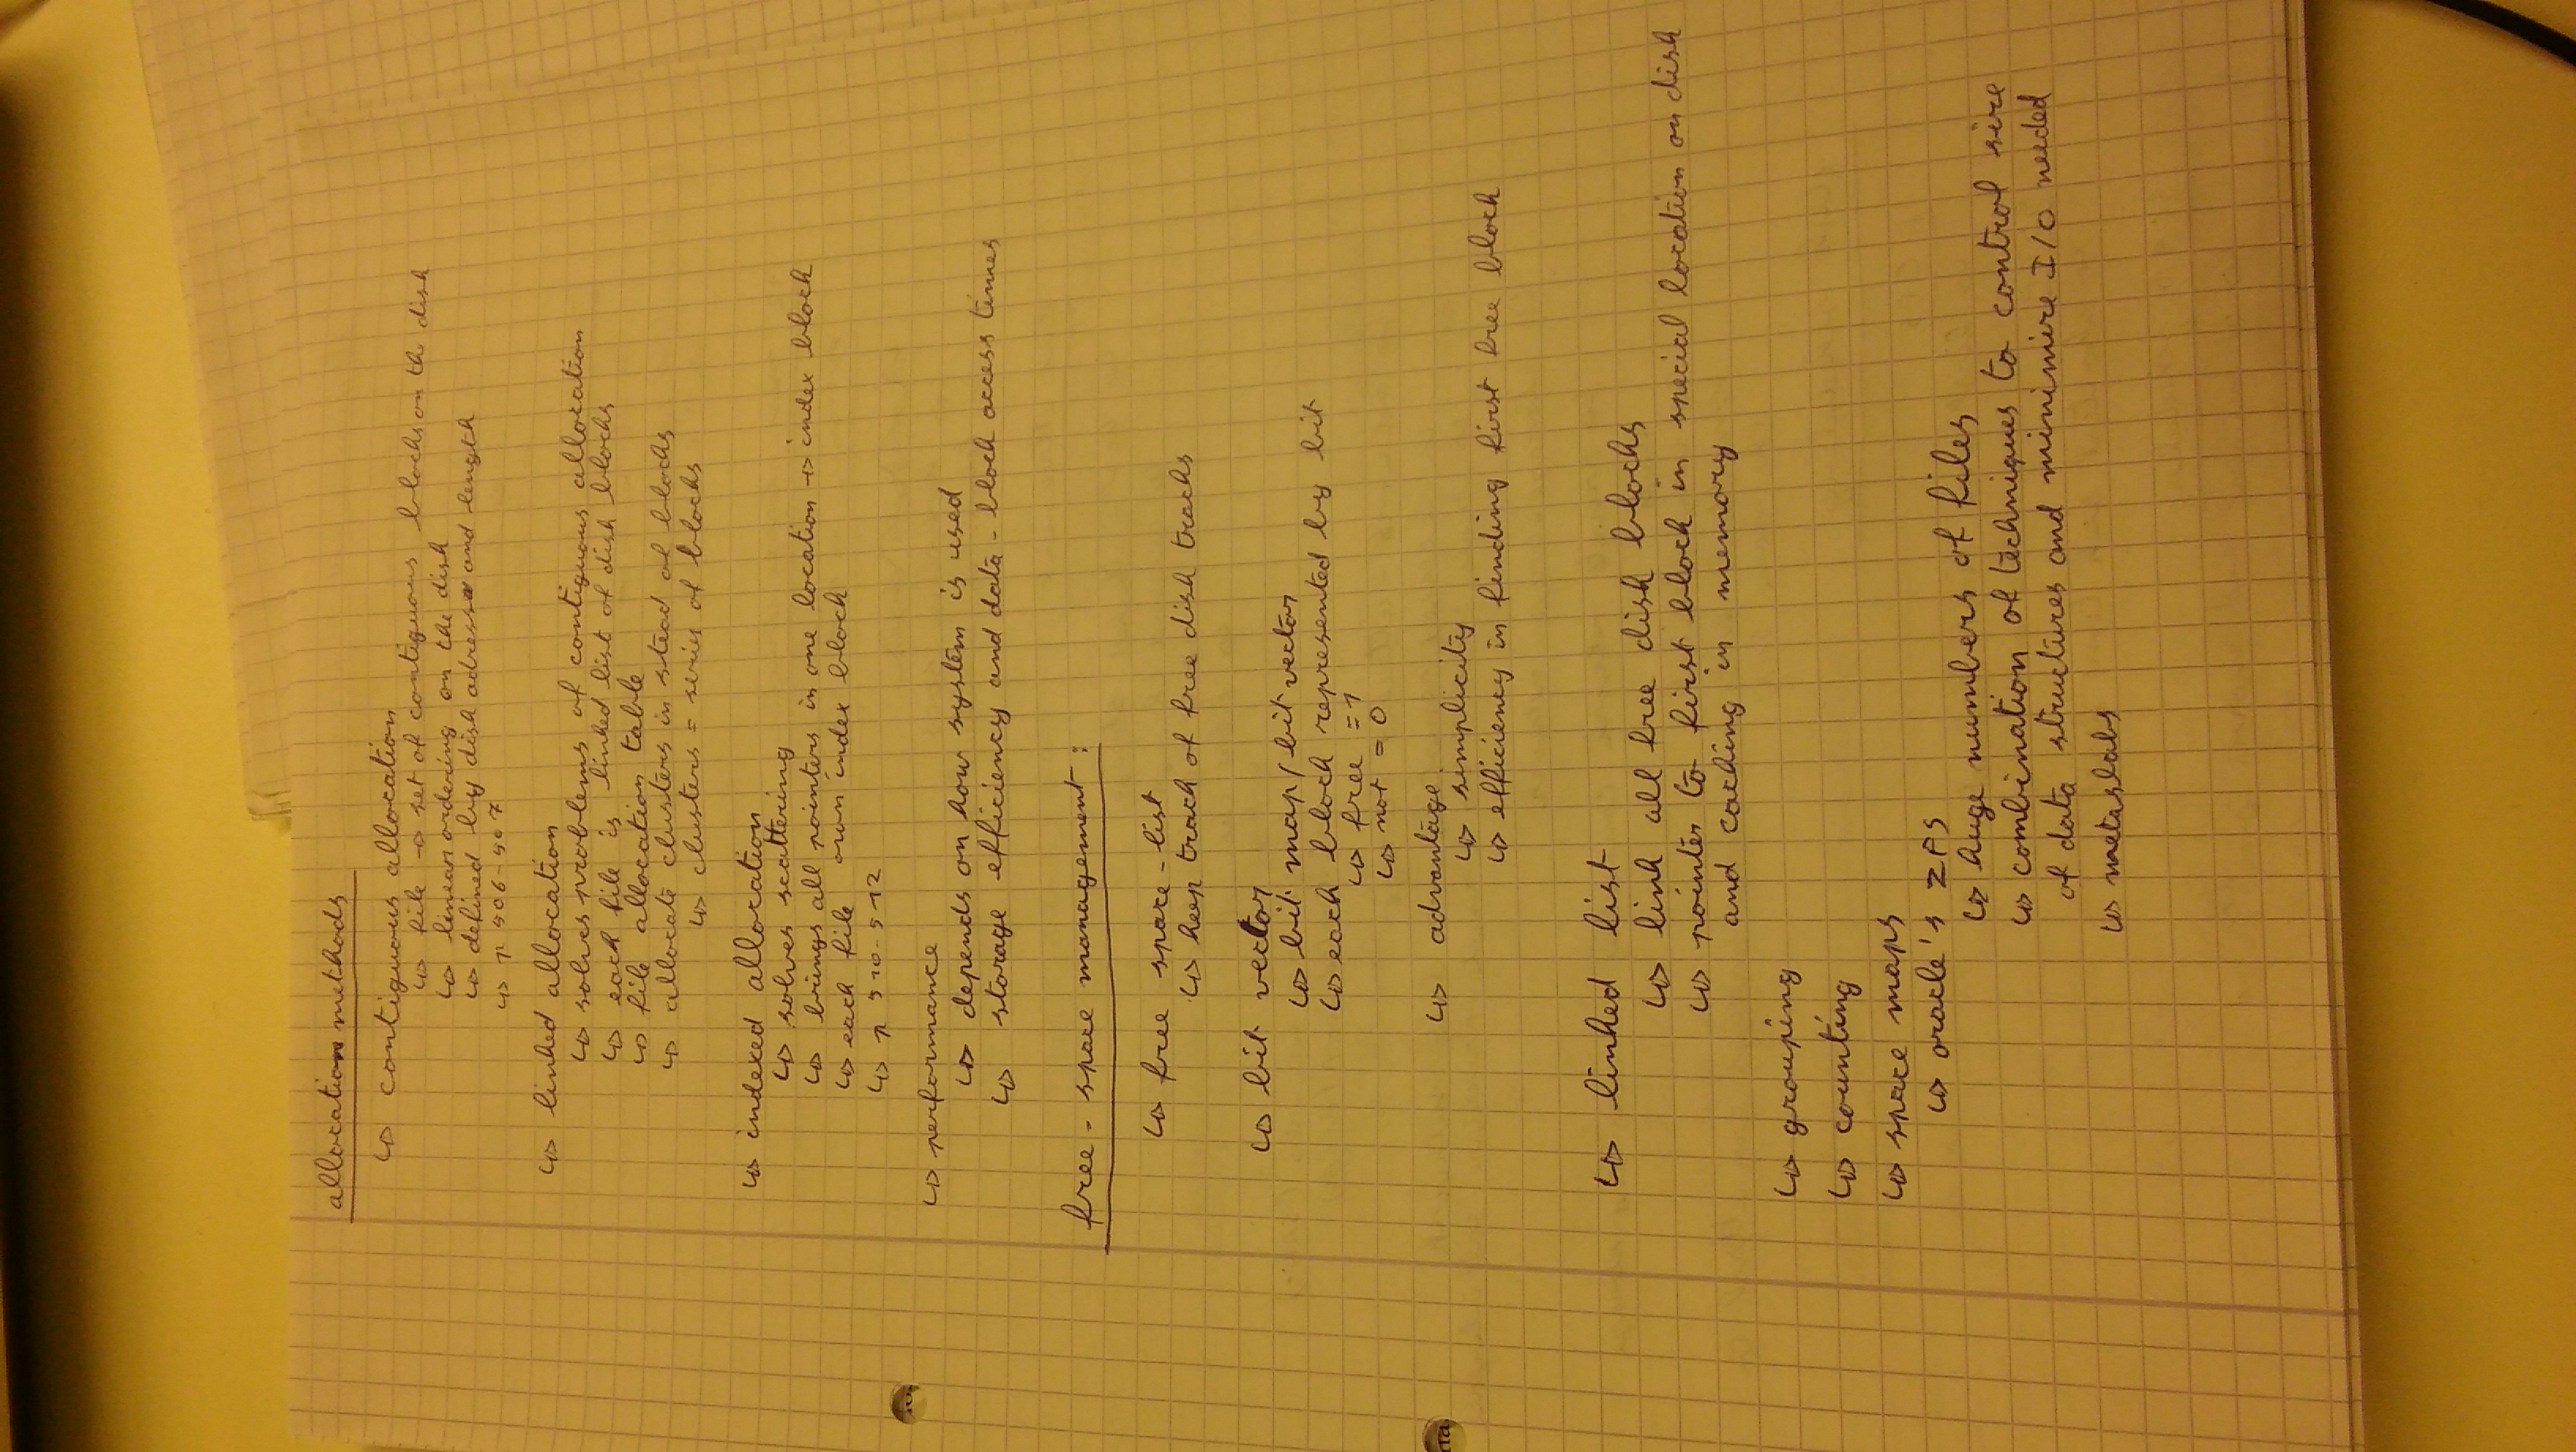 allocation methods
↳ contiguous allocation
↳ file → set of contiguous blocks on the disk
↳ linear ordering on the disk
↳ defined by disk adress and length
↳ p 506-507
↳ linked allocation
↳ solves problems of contiguous allocation
↳ each file is linked list of disk blocks
↳ file allocation table
↳ allocate clusters in stead of blocks
↳ clusters = series of blocks
↳ indexed allocation
↳ solves scattering
↳ brings all pointers in one location → index block
↳ each file own index block
↳ p 510-512
↳ performance
↳ depends on how system is used
↳ storage efficiency and data-block access times
free-space management:
↳ free space-list
↳ keep track of free disk tracks
↳ bit vector
↳ bit map/bit vector
↳ each block represented by bit
↳ free = 1
↳ not = 0
↳ advantage
↳ simplicity
↳ efficiency in finding first free block
↳ linked list
↳ link all free disk blocks
↳ pointer to first block in special location on disk
and caching in memory
↳ grouping
↳ counting
↳ space maps
↳ oracle's ZFS
↳ huge numbers of files
↳ combination of techniques to control size
of data structures and minimize I/O needed
↳ metaslabs